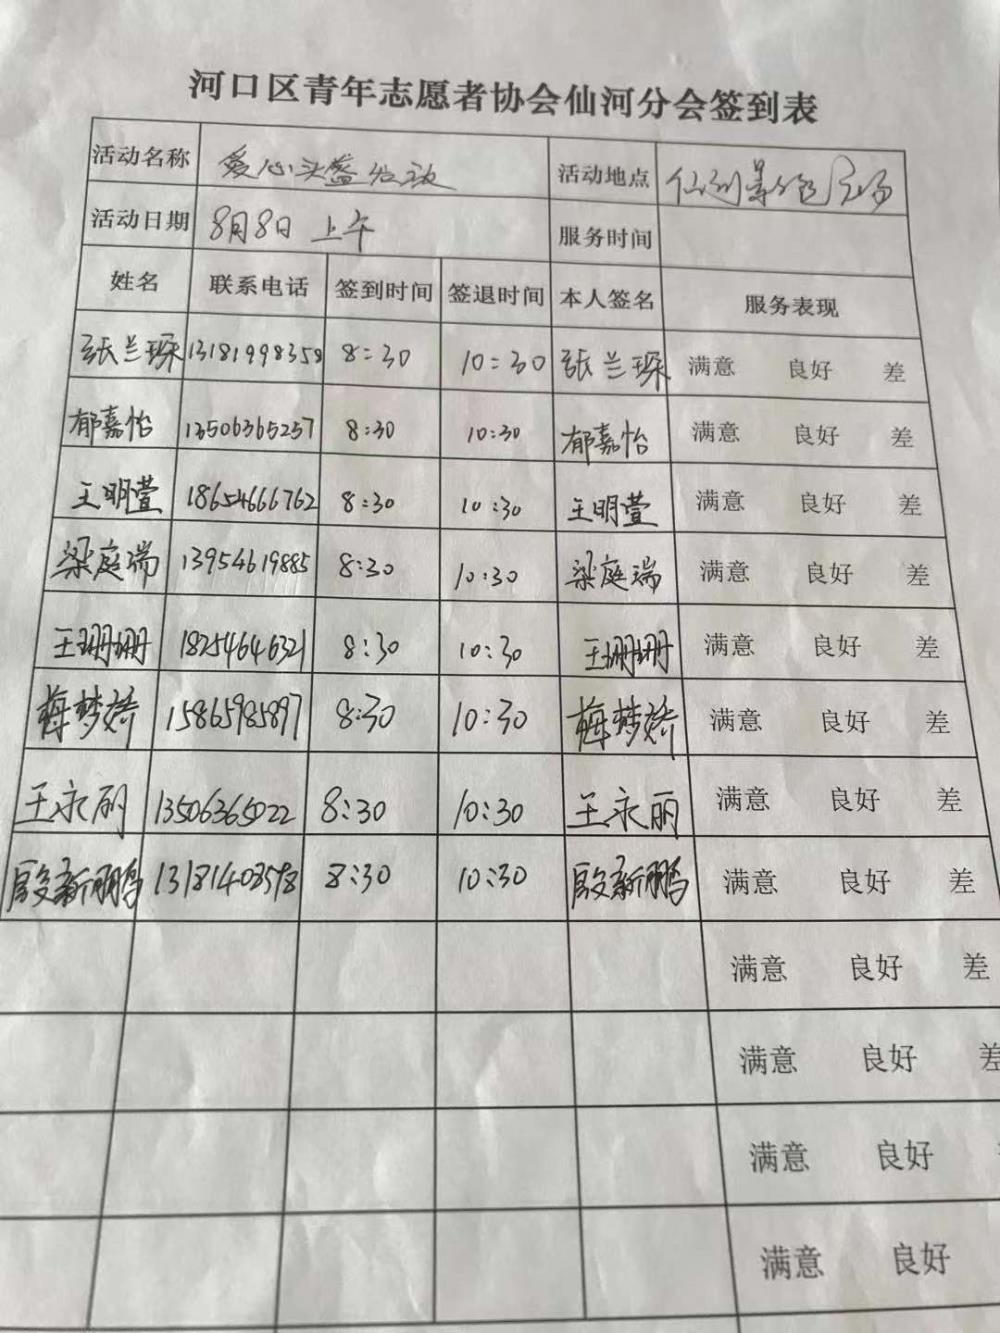 河口区青年志愿者协会仙河分会签到表
活动名称 爱心头盔发放 活动地点 仙河景色广场
活动日期 8月8日 上午 服务时间
姓名 联系电话 签到时间 签退时间 本人签名 服务表现
张兰琛 13181998358 8:30 10:30 张兰琛 满意 良好 差
郁嘉怡 13506365257 8:30 10:30 郁嘉怡 满意 良好 差
王明萱 18654666762 8:30 10:30 王明萱 满意 良好 差
梁庭瑞 13954619885 8:30 10:30 梁庭瑞 满意 良好 差
王珊珊 18254646321 8:30 10:30 王珊珊 满意 良好 差
梅梦娇 15865985897 8:30 10:30 梅梦娇 满意 良好 差
王永丽 13506365022 8:30 10:30 王永丽 满意 良好 差
殷新鹏 13181408598 8:30 10:30 殷新鹏 满意 良好 差
满意 良好 差
满意 良好 差
满意 良好
满意 良好